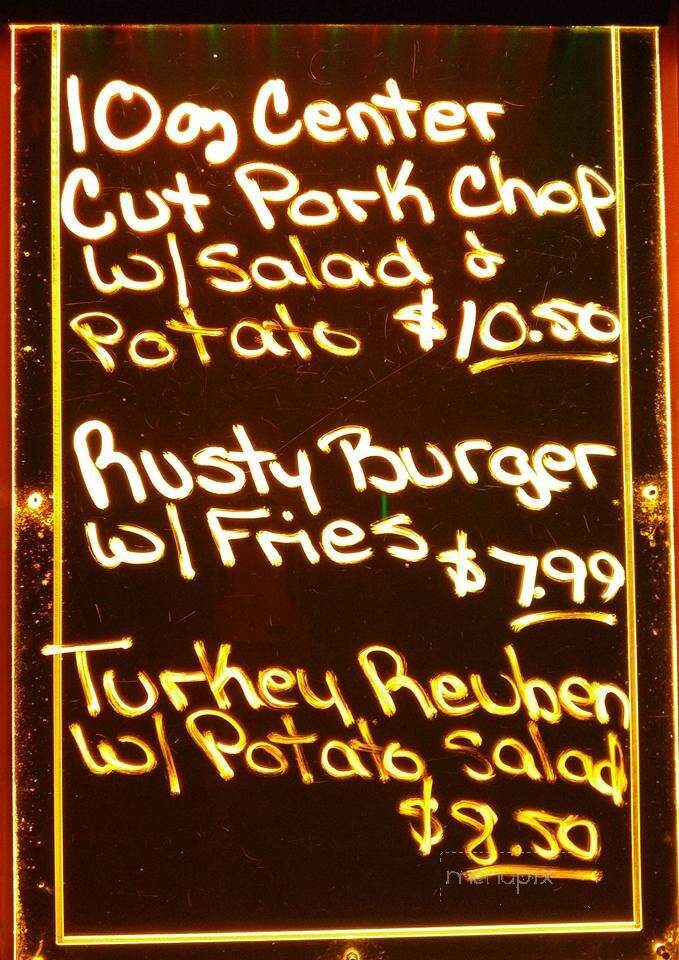 10oz Center
Cut Pork Chop
w/ Salad &
Potato $10.50
Rusty Burger
w/ Fries $7.99
Turkey Reuben
w/ Potato Salad
$8.50
menupix